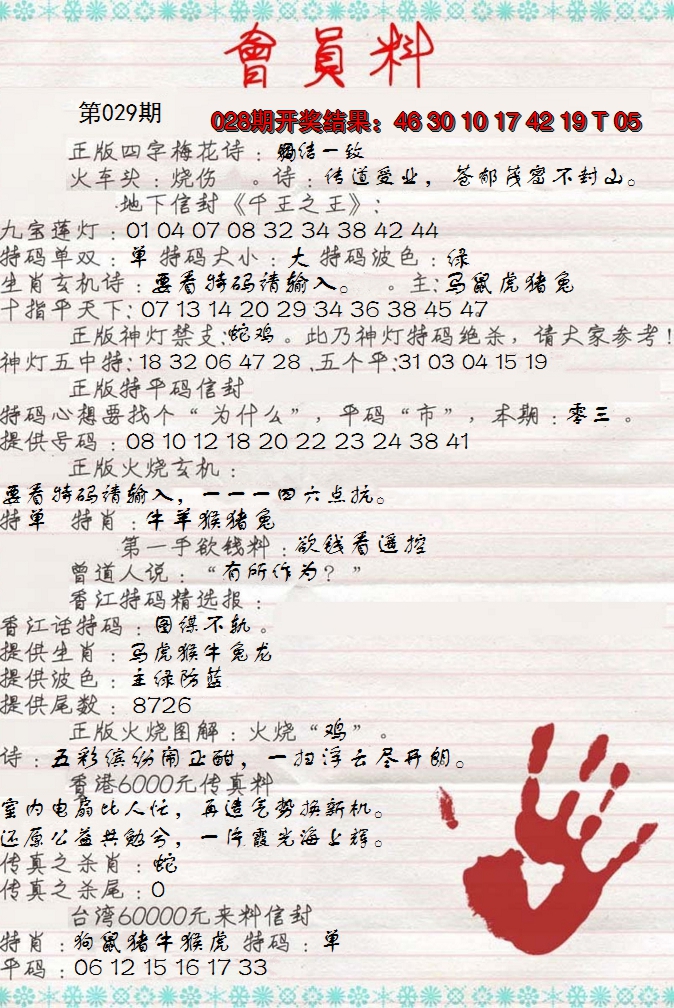 會員料
第029期
028期开奖结果：46 30 10 17 42 19 T 05
正版四字梅花诗：团结一致
火车头：烧伤 。诗：传道受业，苍郁茂密不封山。
地下信封《千王之王》：
九宝莲灯：01 04 07 08 32 34 38 42 44
特码单双：单 特码大小：大 特码波色：绿
生肖玄机诗：要看特码请输入。 。主：马鼠虎猪兔
十指平天下：07 13 14 20 29 34 36 38 45 47
正版神灯禁支：蛇鸡。此乃神灯特码绝杀，请大家参考！
神灯五中特：18 32 06 47 28 .五个平：31 03 04 15 19
正版特平码信封
特码心想要找个“为什么”，平码“市”，本期：零三 。
提供号码：08 10 12 18 20 22 23 24 38 41
正版火烧玄机：
要看特码请输入，一一一四六点抗。
特单 特肖：牛羊猴猪兔
第一手欲钱料：欲钱看遥控
曾道人说：“有所作为？”
香江特码精选报：
香江话特码：图谋不轨。
提供生肖：马虎猴牛兔龙
提供波色：主绿防蓝
提供尾数：8726
正版火烧图解：火烧“鸡”。
诗：五彩缤纷闹正酣，一扫浮云尽开朗。
香港6000元传真料
室内电扇比人忙，再造气势换新机。
还原公益共勉兮，一片霞光海上辉。
传真之杀肖：蛇
传真之杀尾：0
台湾60000元来料信封
特肖：狗鼠猪牛猴虎 特码：单
平码：06 12 15 16 17 33